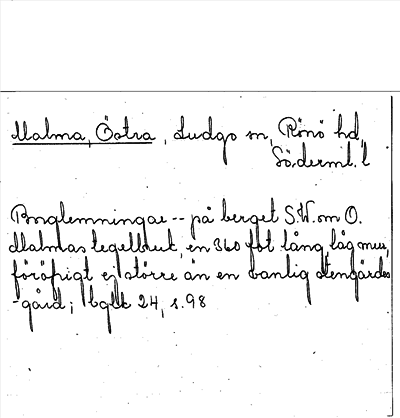 Malma, Östra, Ludgo sn, Rönö hd,
Söderml. l
Borglemningar -- på berget S.W. om O.
Malmas tegelbruk, en 360 fot lång låg mur,
föröfrigt ej större än en vanlig stengärdes
-gård; bglk 24, s. 98